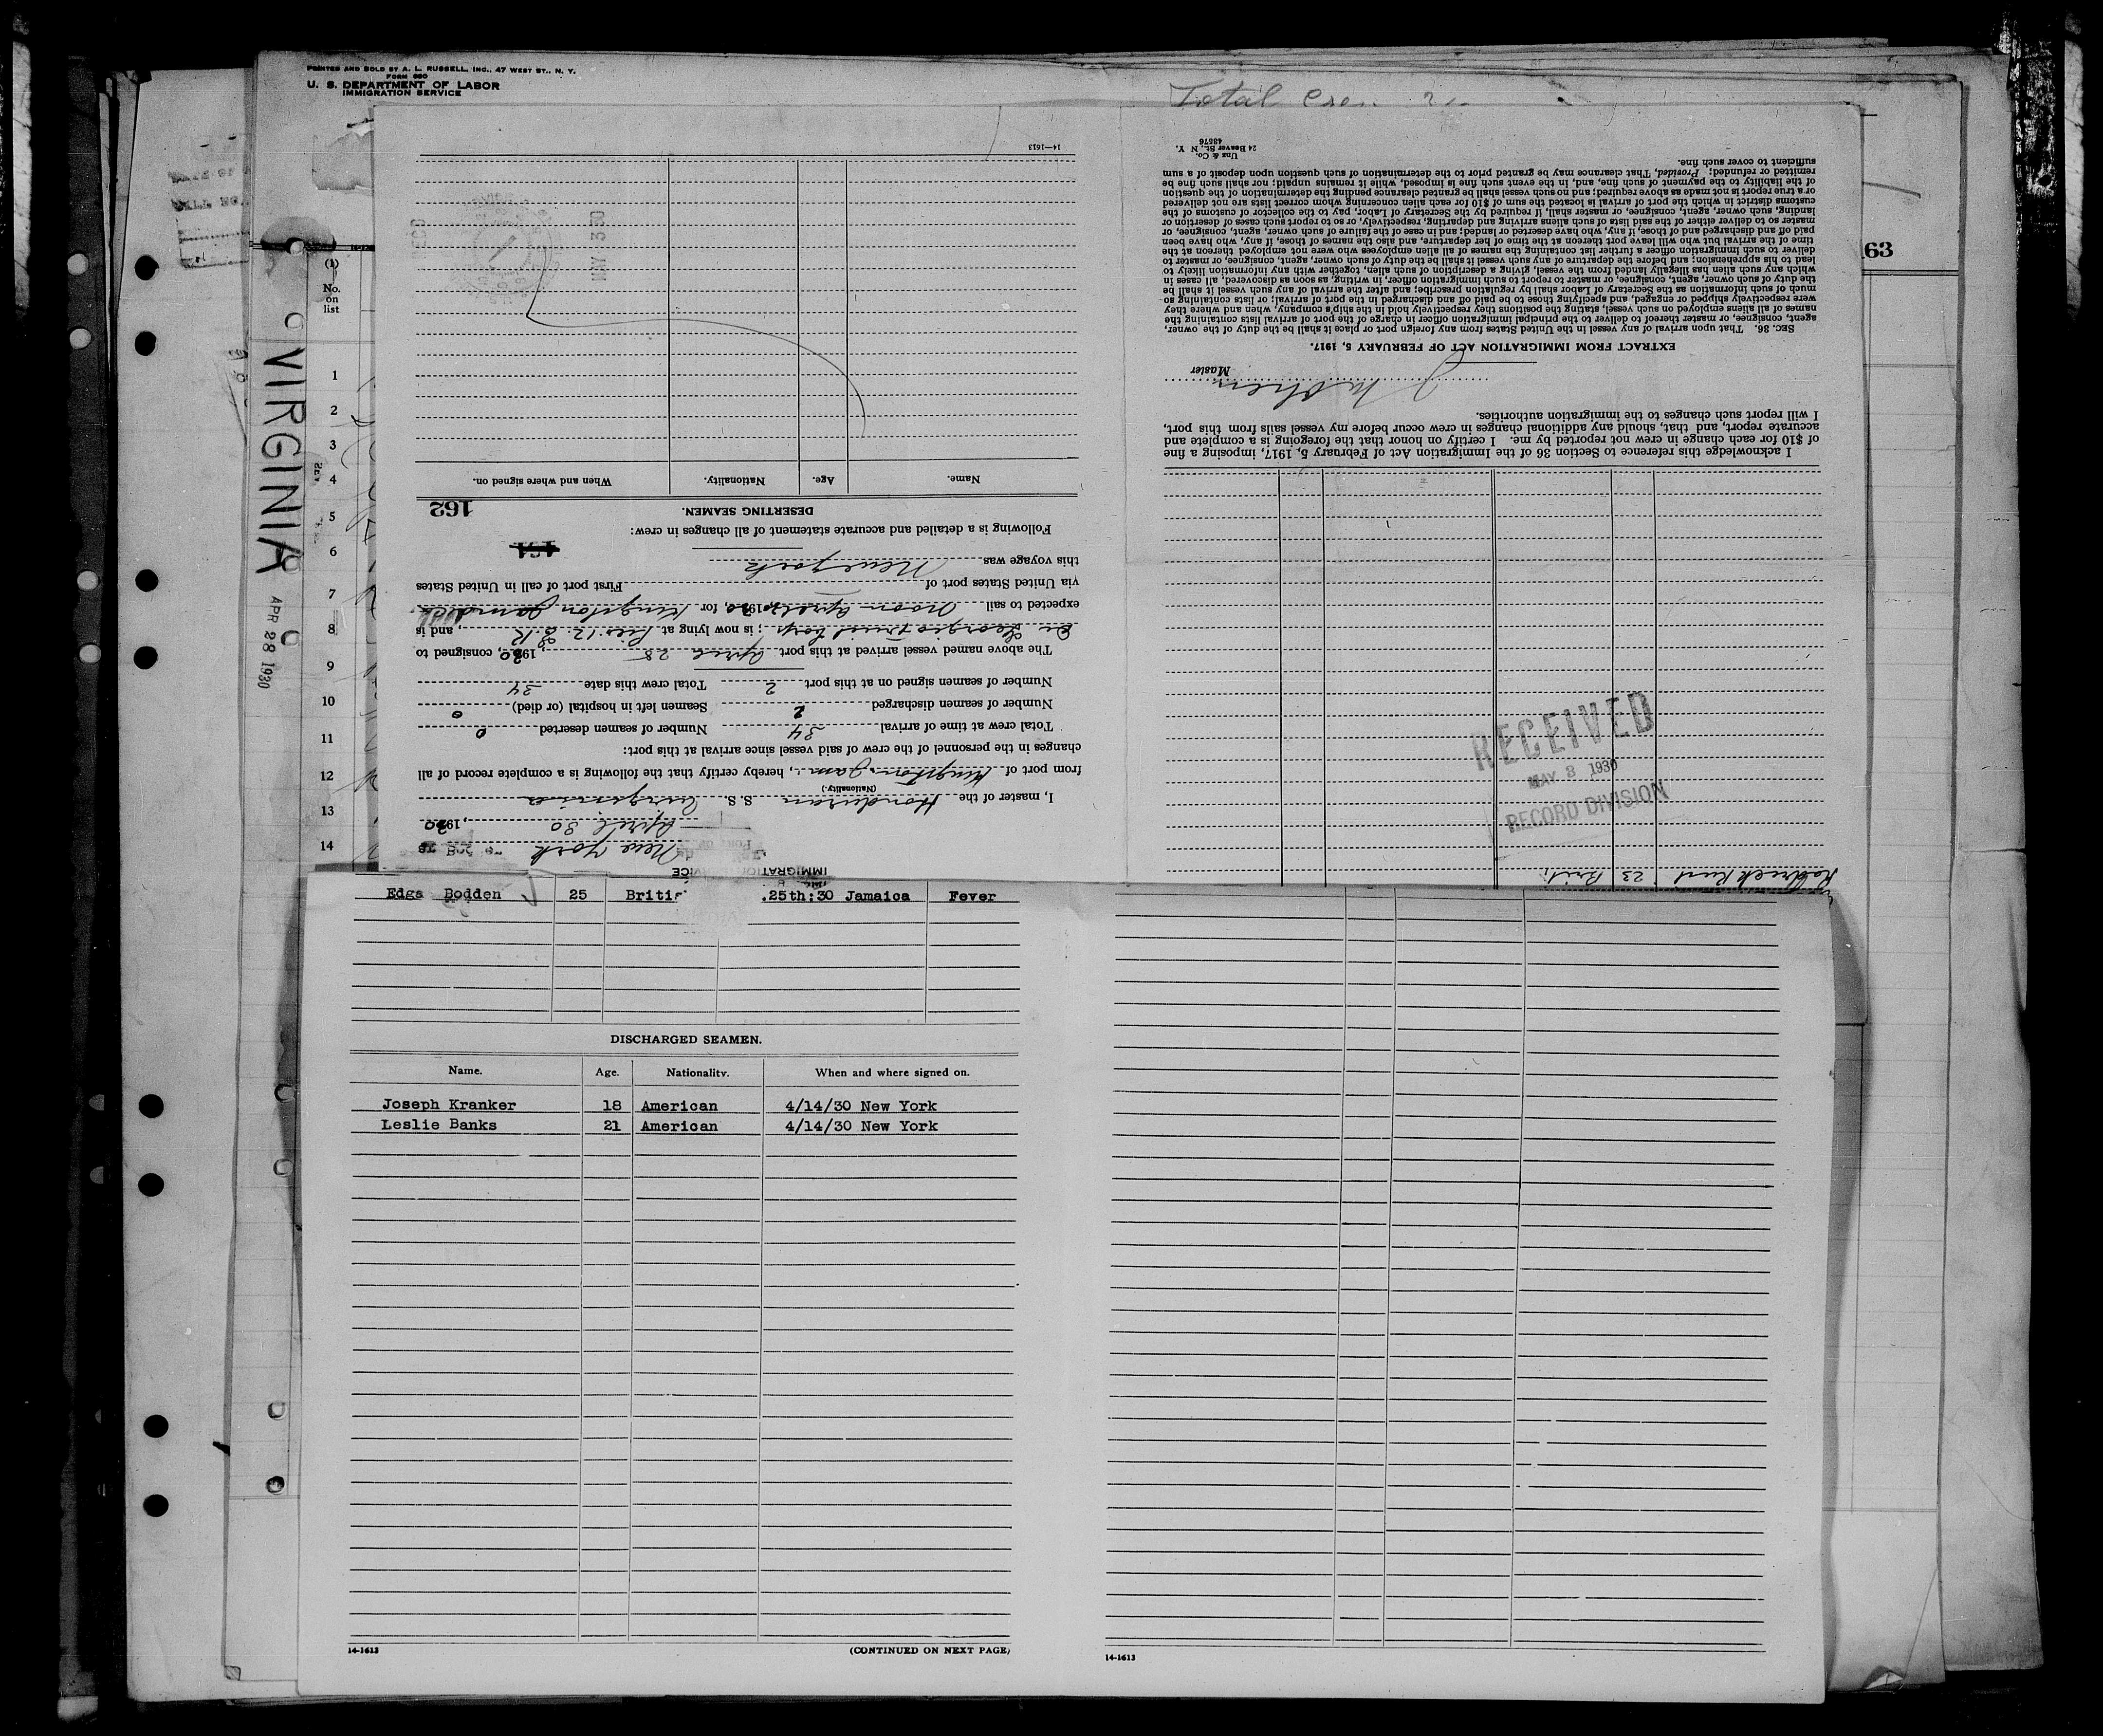 PRINTED AND SOLD BY A. L. RUSSELL, INC., 47 WEST ST., N. Y.
FORM 680
U. S. DEPARTMENT OF LABOR
IMMIGRATION SERVICE
Total Crew
63
(1)
No.
on
list
1
2
3
4
5
6
7
8
9
10
11
12
13
14
VIRGINIA
APR 28 1930
IMMIGRATION SERVICE
New York
April 30, 1930
I, master of the Honduran S. S. Virginia
(Nationality.)
from port of Kingston Jam., hereby certify that the following is a complete record of all
changes in the personnel of the crew of said vessel since arrival at this port:
Total crew at time of arrival 34 Number of seamen deserted 0
Number of seamen discharged 2 Seamen left in hospital (or died) 0
Number of seamen signed on at this port 2 Total crew this date 34
The above named vessel arrived at this port April 28 1930, consigned to
Di Giorgio Fruit Corp; is now lying at Pier 12. E.R, and is
expected to sail Noon April 30 1930, for Kingston Jamaica
via United States port of First port of call in United States
this voyage was New York
Following is a detailed and accurate statement of all changes in crew:
162
DESERTING SEAMEN.
Name. Age. Nationality. When and where signed on.
MAY 3 30
14—1613
Roderick 23 Brit.
RECEIVED
MAY 3 1930
RECORD DIVISION
I acknowledge this reference to Section 36 of the Immigration Act of February 5, 1917, imposing a fine
of $10 for each change in crew not reported by me. I certify on honor that the foregoing is a complete and
accurate report, and that, should any additional changes in crew occur before my vessel sails from this port,
I will report such changes to the immigration authorities.
Master
EXTRACT FROM IMMIGRATION ACT OF FEBRUARY 5, 1917.
SEC. 36. That upon arrival of any vessel in the United States from any foreign port or place it shall be the duty of the owner,
agent, consignee, or master thereof to deliver to the principal immigration officer in charge of the port of arrival lists containing the
names of all aliens employed on such vessel, stating the positions they respectively hold in the ship's company, when and where they
were respectively shipped or engaged, and specifying those to be paid off and discharged in the port of arrival; or lists containing so
much of such information as the Secretary of Labor shall by regulation prescribe; and after the arrival of any such vessel it shall be
the duty of such owner, agent, consignee, or master to report to such immigration officer, in writing, as soon as discovered, all cases in
which any such alien has illegally landed from the vessel, giving a description of such alien, together with any information likely to
lead to his apprehension; and before the departure of any such vessel it shall be the duty of such owner, agent, consignee, or master to
deliver to such immigration officer a further list containing the names of all alien employees who were not employed thereon at the
time of the arrival but who will leave port thereon at the time of her departure, and also the names of those, if any, who have been
paid off and discharged and of those, if any, who have deserted or landed; and in case of the failure of such owner, agent, consignee, or
master so to deliver either of the said lists of such aliens arriving and departing, respectively, or so to report such cases of desertion or
landing, such owner, agent, consignee, or master shall, if required by the Secretary of Labor, pay to the collector of customs of the
customs district in which the port of arrival is located the sum of $10 for each alien concerning whom correct lists are not delivered
or a true report is not made as above required; and no such vessel shall be granted clearance pending the determination of the question
of the liability to the payment of such fine, and, in the event such fine is imposed, while it remains unpaid; nor shall such fine be
remitted or refunded; Provided, That clearance may be granted prior to the determination of such question upon deposit of a sum
sufficient to cover such fine.
Unz & Co.
24 Beaver St., N. Y.
43576
Bodden 25 25th:30 Jamaica Fever
DISCHARGED SEAMEN.
Name. Age. Nationality. When and where signed on.
Joseph Kranker 18 American 4/14/30 New York
Leslie Banks 21 American 4/14/30 New York
14-1613
(CONTINUED ON NEXT PAGE)
14-1613